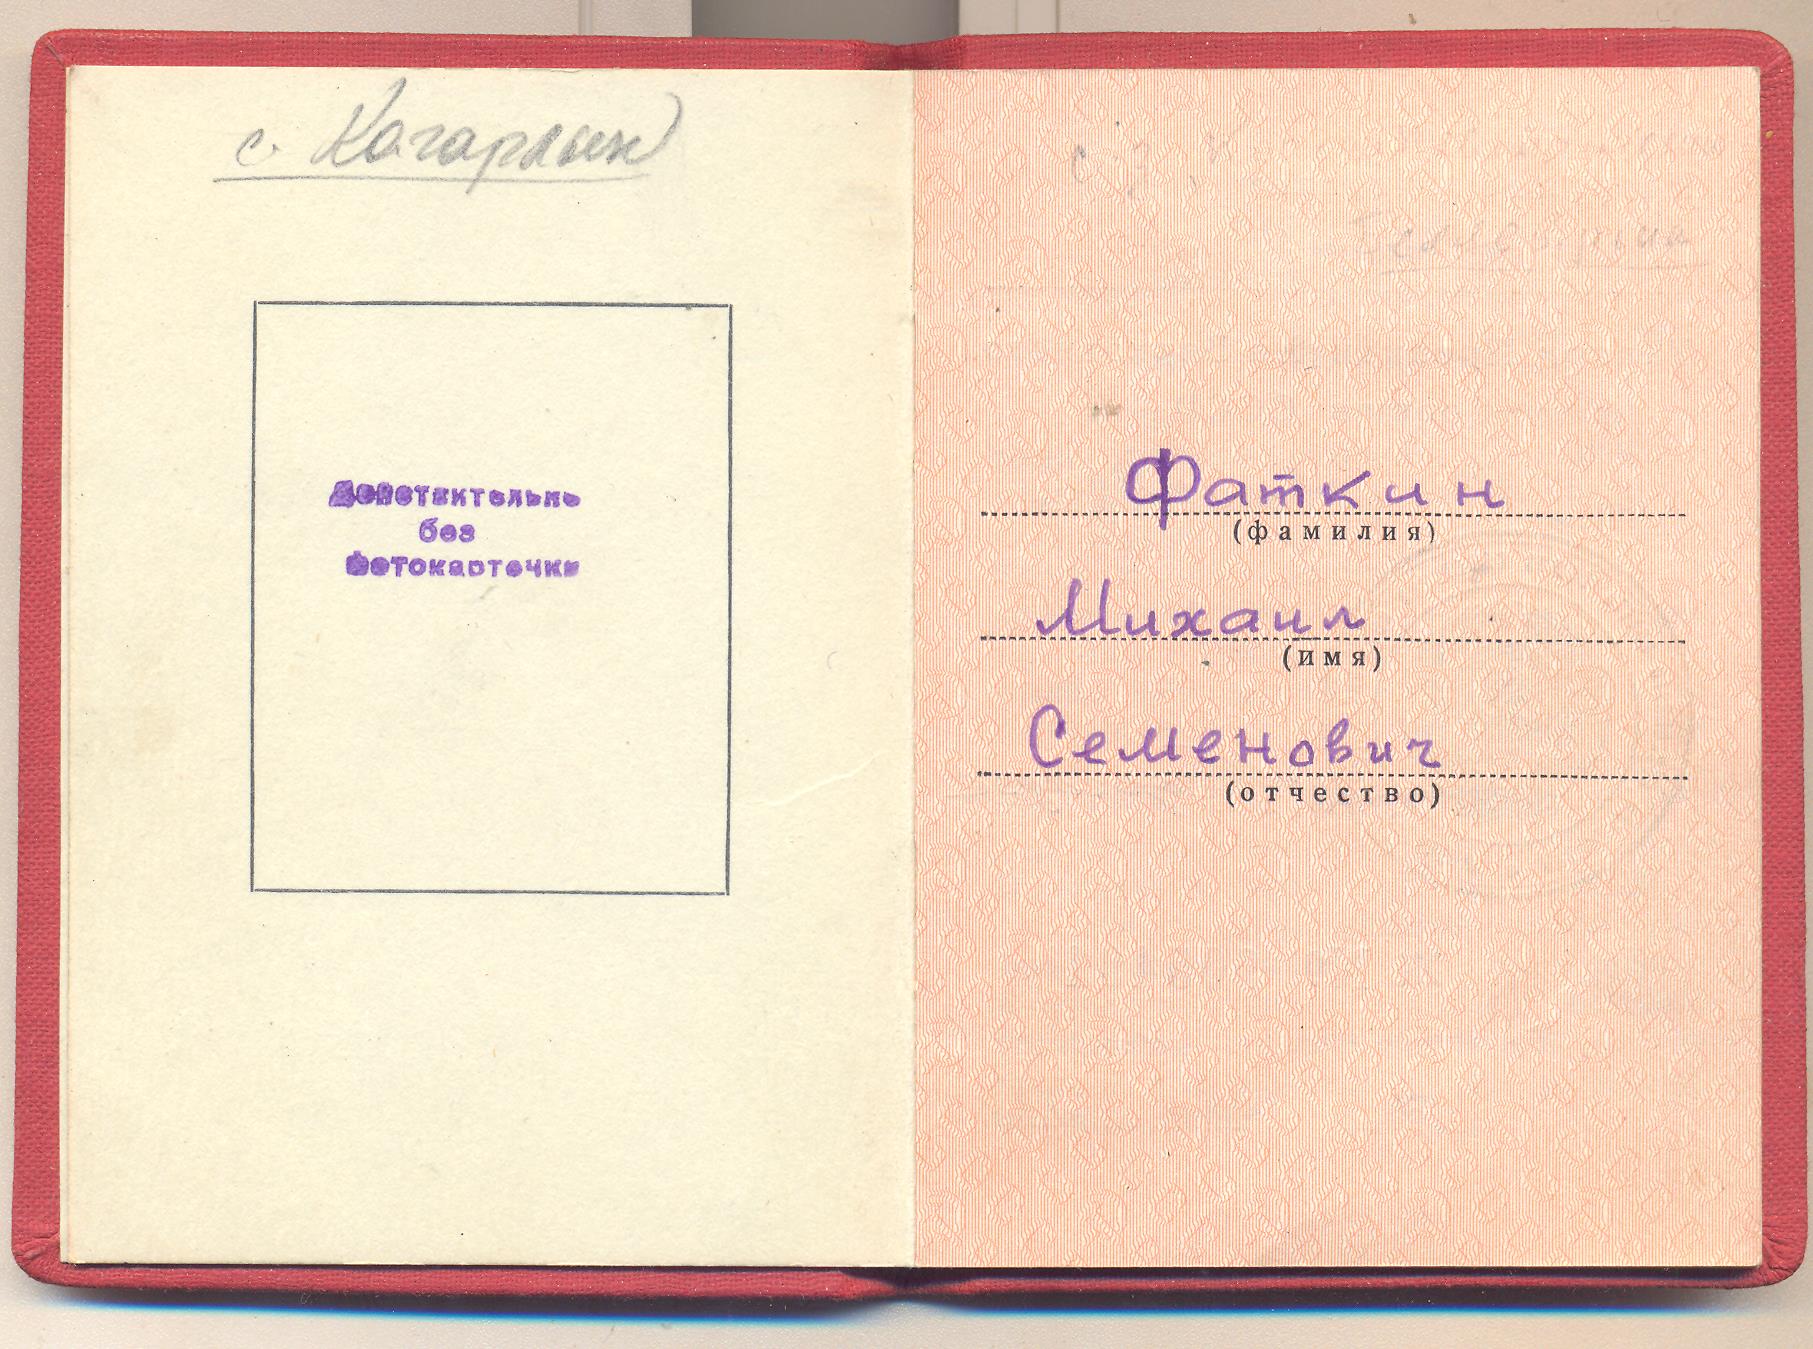 с. Кагарлык
Действительно
без
фотокарточки
Фаткин
(фамилия)
Михаил
(имя)
Семенович
(отчество)